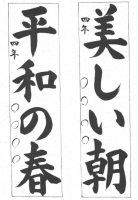 美しい朝
四年
○○○○
平和の春
四年
○○○○